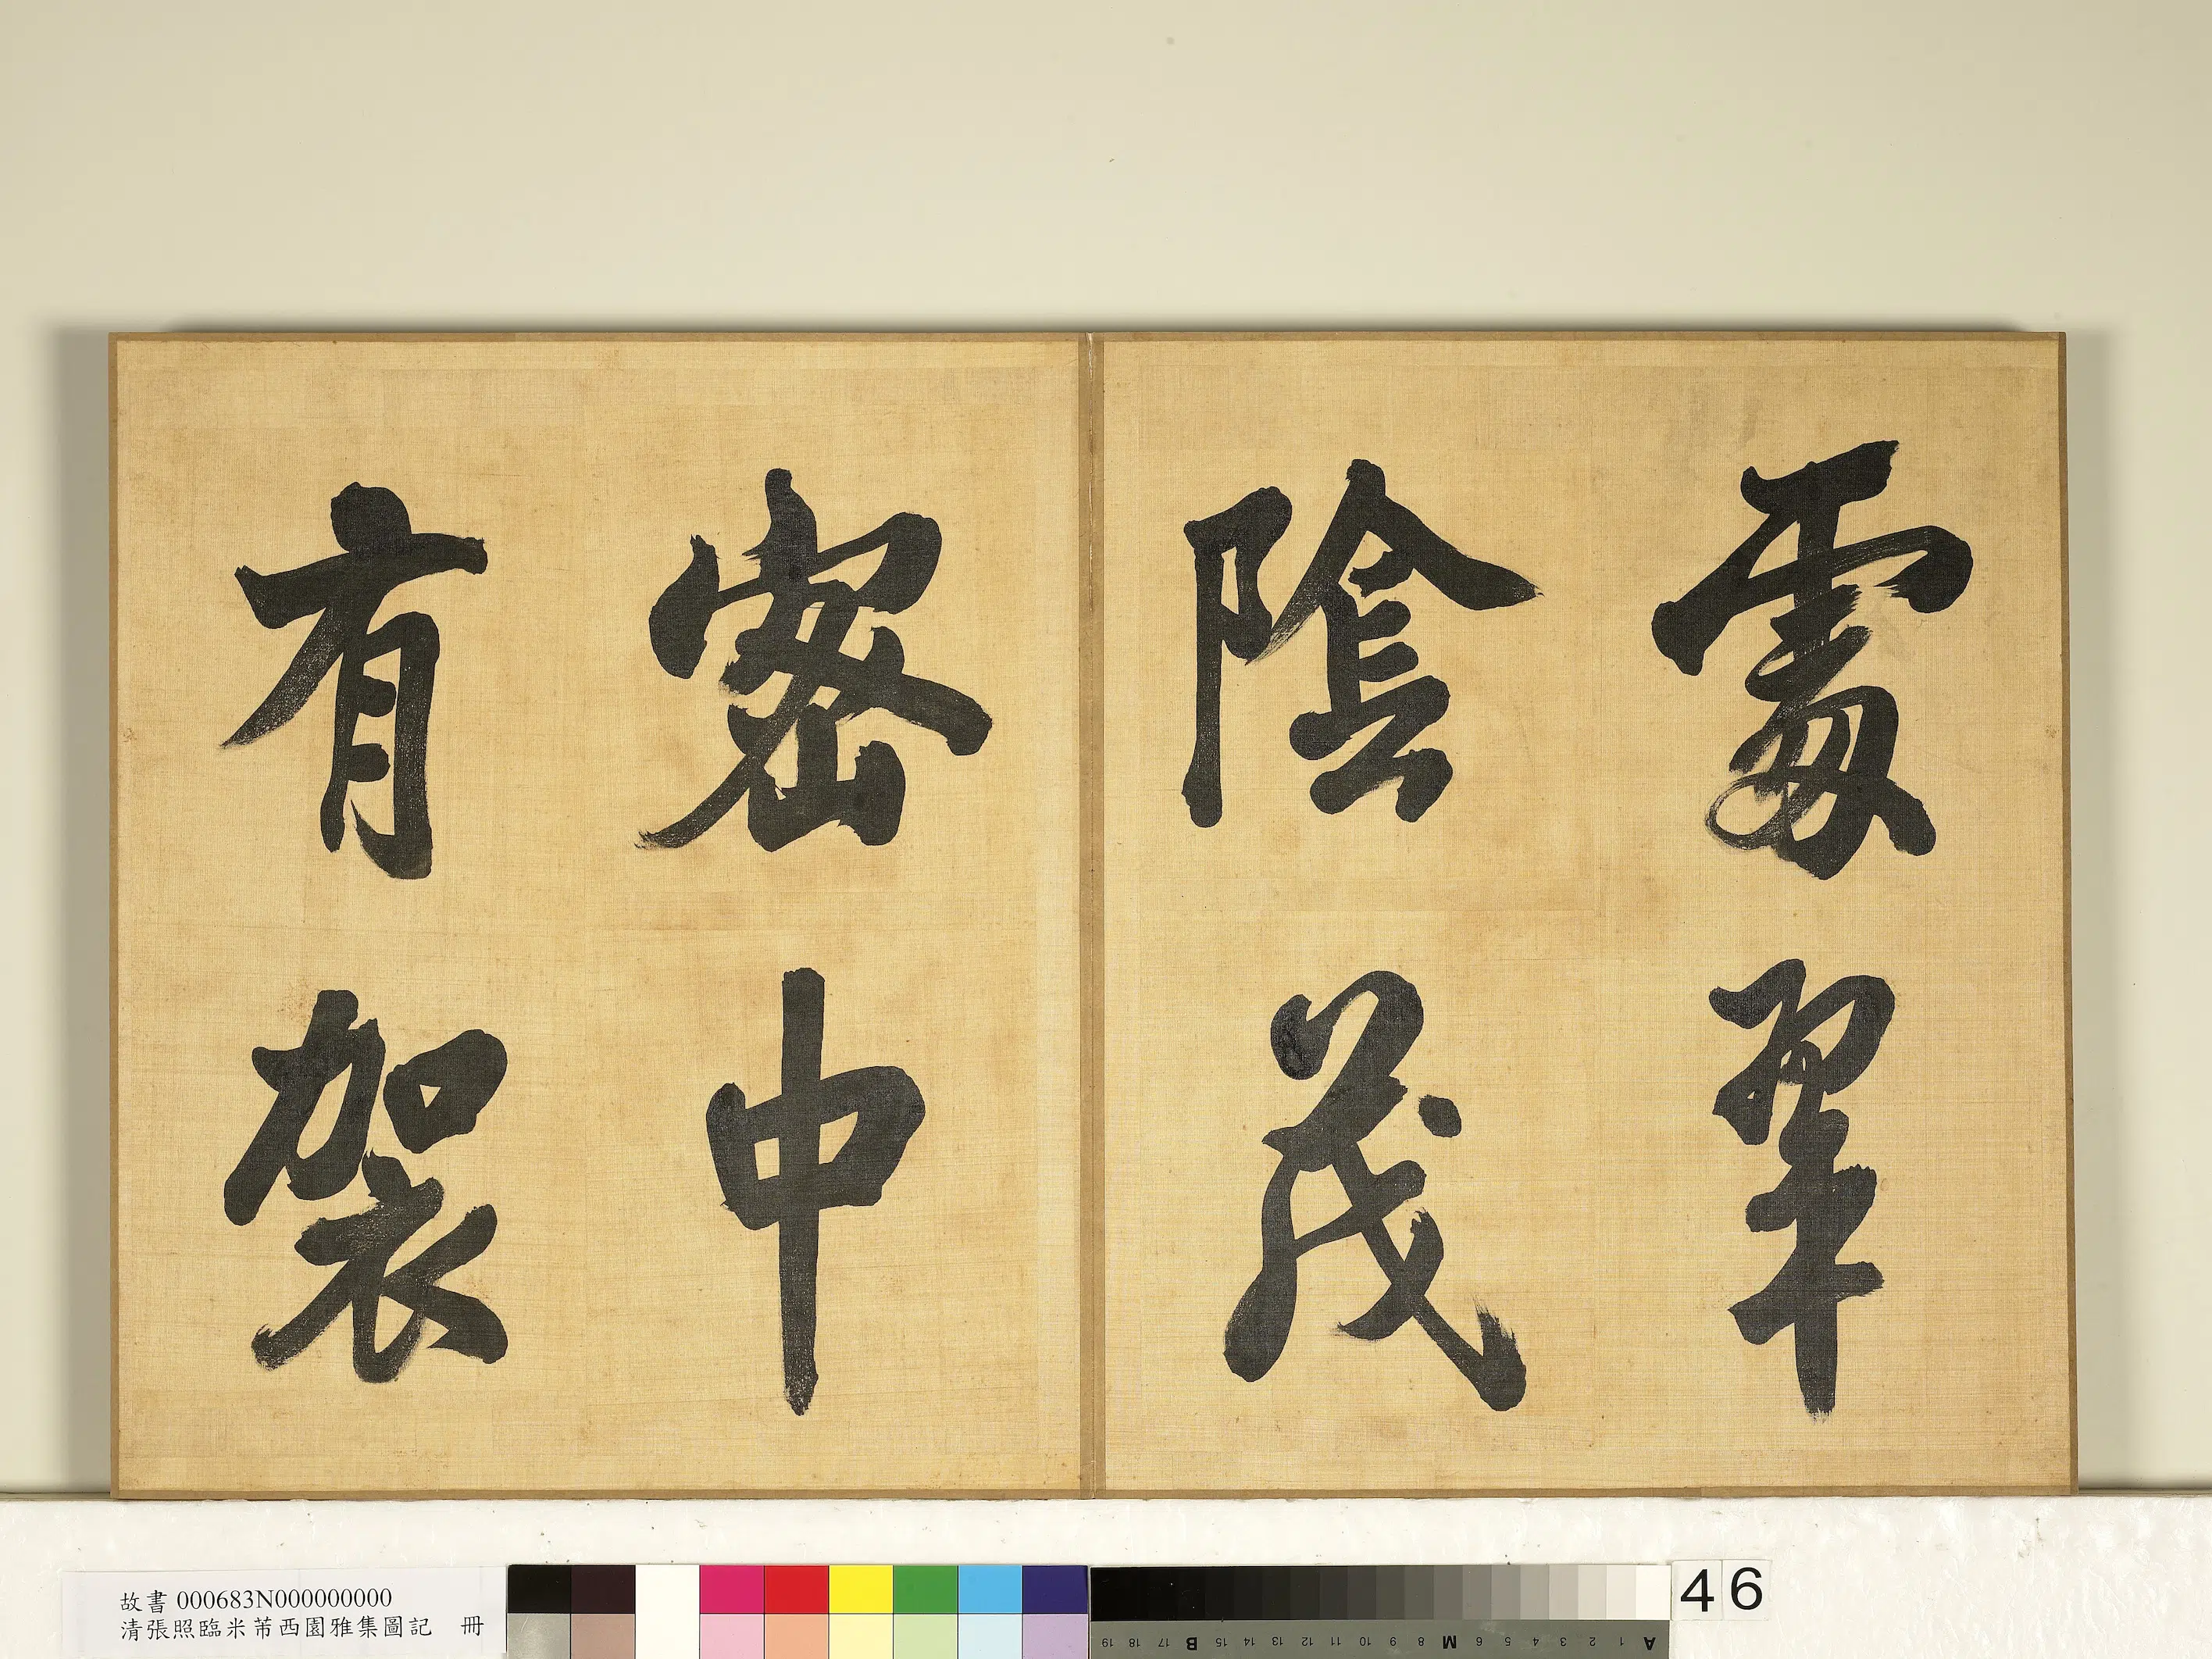 處翠
陰茂
密中
有袈
故書 000683N000000000
清張照臨米芾西園雅集圖記 冊
A 1 2 3 4 5 6 M 8 9 10 11 12 13 14 15 B 17 18 19
46